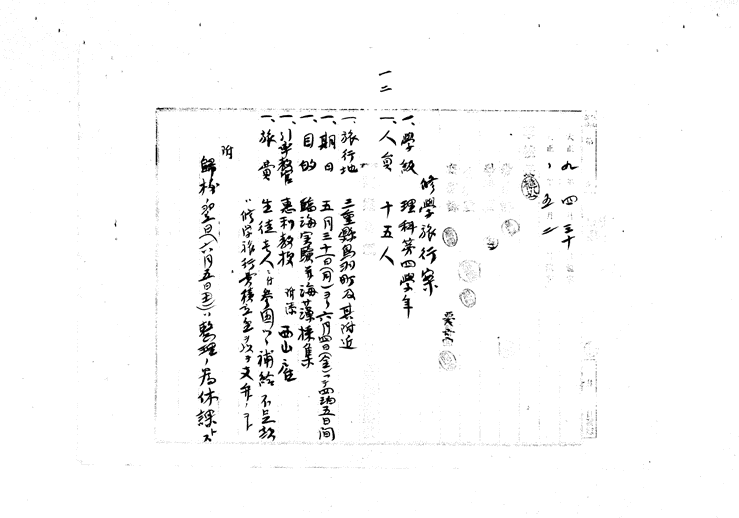 一二
九 四 三十
〃 五 二
修學旅行案
一、學級 理科第四學年
一、人員 十五人
一、旅行地 三重縣鳥羽町及其附近
一、期日 五月三十一日(月)ヨリ六月四日(金)マデ四泊五日間
一、目的 臨海実驗並海藻採集
一、引率教官 惠利教授 附添 西山雇
一、旅費 生徒壱人ニ付参圓ヅヽ補給不足額
ハ修学旅行費積立金ヨリ支弁ノコト
附
歸校ノ翌日(六月五日土)ハ整理ノ為休課